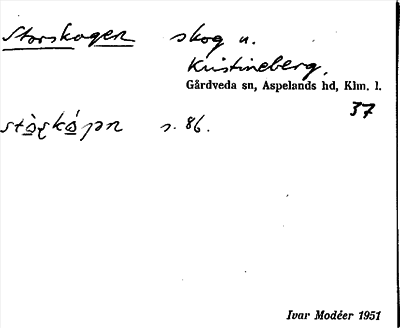 Storskogen skog u.
Kristineberg,
Gårdveda sn, Aspelands hd, Klm. l.
37
s. 86.
Ivar Modéer 1951